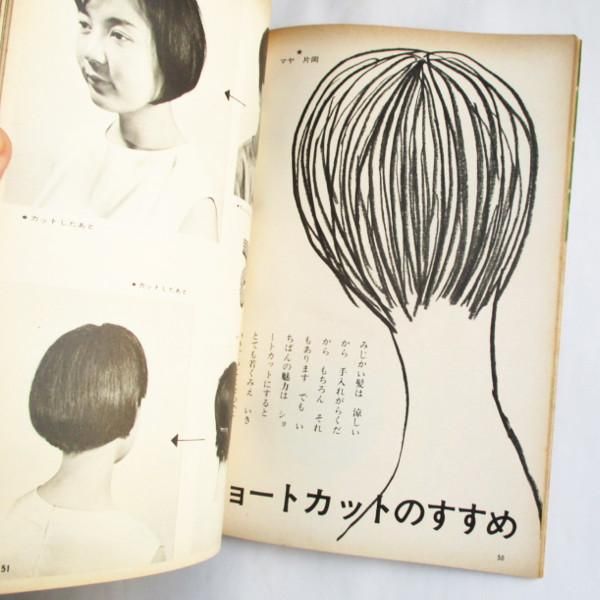 マヤ★片岡
みじかい髪は 涼しい
から 手入れがらくだ
から もちろん それ
もあります でも い
ちばんの魅力は ショ
ートカットにすると
とても若くみえ いき
ョートカットのすすめ
50
●カットしたあと
●カットしたあと
51